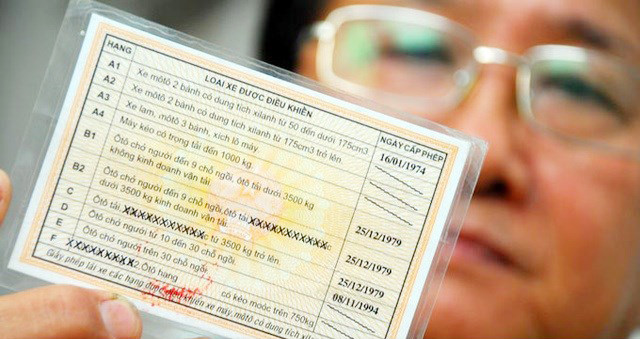 HẠNG LOẠI XE ĐƯỢC ĐIỀU KHIỂN NGÀY CẤP PHÉP
A1 Xe môtô 2 bánh có dung tích xilanh từ 50 đến dưới 175cm3 16/01/1974
A2 Xe môtô 2 bánh có dung tích xilanh từ 175cm3 trở lên.
A3 Xe lam, môtô 3 bánh, xích lô máy.
A4 Máy kéo có trọng tải đến 1000 kg.
B1 Ôtô chở người đến 9 chỗ ngồi, ôtô tải dưới 3500 kg
không kinh doanh vận tải
B2 Ôtô chở người đến 9 chỗ ngồi, ôtô tải XXXXXXXXXXX 25/12/1979
dưới 3500 kg kinh doanh vận tải.
C Ôtô tải XXXXXXXXXX từ 3500 kg trở lên. 25/12/1979
D Ôtô chở người từ 10 đến 30 chỗ ngồi. 25/12/1979
E Ôtô chở người trên 30 chỗ ngồi. 08/11/1994
F XXXXXXXXX Ôtô hạng có kéo moóc trên 750kg
Giấy phép lái xe các hạng điều khiển xe máy, môtô có dung tích